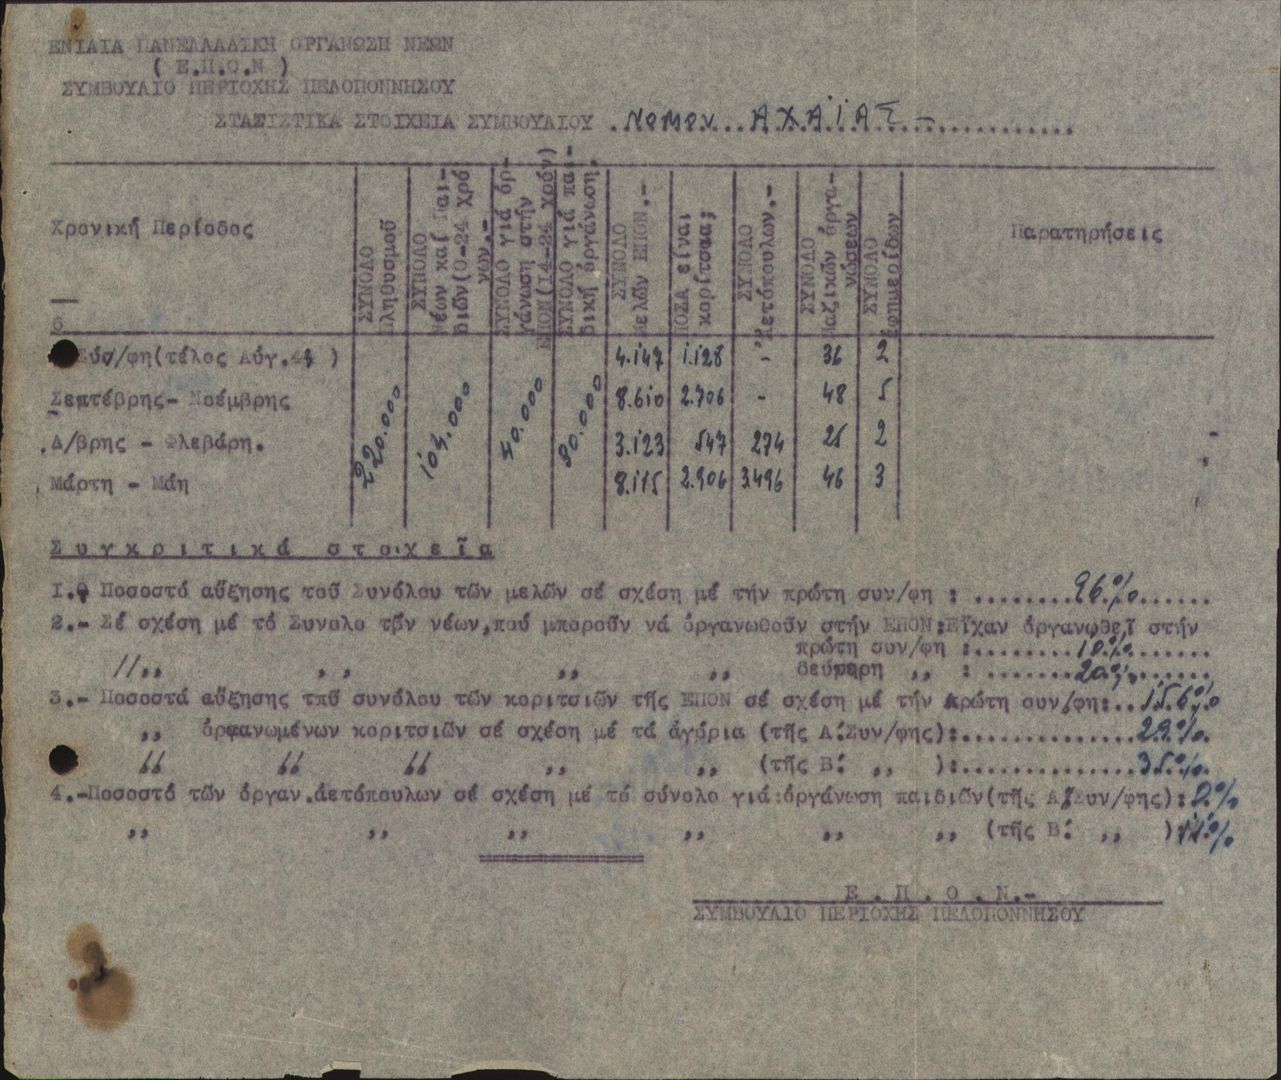 ΕΝΙΑΙΑ ΠΑΝΕΛΛΑΔΙΚΗ ΟΡΓΑΝΩΣΗ ΝΕΩΝ
( Ε.Π.Ο.Ν )
ΣΥΜΒΟΥΛΙΟ ΠΕΡΙΟΧΗΣ ΠΕΛΟΠΟΝΝΗΣΟΥ
ΣΤΑΤΙΣΤΙΚΑ ΣΤΟΙΧΕΙΑ ΣΥΜΒΟΥΛΙΟΥ ..Νομου...ΑΧΑΪΑΣ-..............
Χρονική Περίοδος
ΣΥΝΟΛΟ
πληθυσμοῦ
ΣΥΝΟΛΟ
Νέων καί Παι-
διῶν(0-24 Χρό
νων.-
ΣΥΝΟΛΟ γιά ὀρ-
γάνωση στήν
ΕΠΟΝ(14-24 Χρόν)
ΣΥΝΟΛΟ γιά παι-
δική ὀργάνωση.
ΣΥΝΟΛΟ
μελῶν ΕΠΟΝ.-
ΠΟΣΑ εἶναι
κορίτσια;
ΣΥΝΟΛΟ
Ἀετόπουλων.-
ΣΥΝΟΛΟ
Μαζικῶν ὀργα-
νώσεων
ΣΥΝΟΛΟ
ἐφημερίδων
Παρατηρήσεις
Σύσ/φη(τέλος Αὐγ.43 ) 4.147 1.128 - 36 2
Σεπτέβρης- Νοέμβρης 8.610 2.706 - 48 5
220.000 104.000 40.000 80.000
Δ/βρης - Φλεβάρη. 3.123 547 274 25 2
Μάρτη - Μάη 8.115 2.906 3.496 46 3
Συγκριτικά στοιχεῖα
1.- Ποσοστό αὔξησης τοῦ Συνόλου τῶν μελῶν σέ σχέση μέ τήν πρώτη συν/φη : ........96%......
2.- Σέ σχέση μέ τό Συνολο τῶν νέων,πού μποροῦν νά ὀργανωθοῦν στήν ΕΠΟΝ:Εἶχαν ὀργανωθεῖ στήν
πρώτη συν/φη :........10%.......
//,, ,, ,, ,, ,, δεύτερη ,, : ........20%.......
3.- Ποσοστά αὔξησης τοῦ συνόλου τῶν κοριτσιῶν τῆς ΕΠΟΝ σέ σχέση μέ τήν πρώτη συν/φη:..156%
,, ὀργανωμένων κοριτσιῶν σέ σχέση μέ τά ἀγόρια (τῆς Α΄.Συν/φης):..............29%.
,, ,, ,, ,, ,, (τῆς Β΄. ,, ):..............35%.
4.-Ποσοστό τῶν ὀργαν.ἀετόπουλων σέ σχέση μέ τό σύνολο γιά ὀργάνωση παιδιῶν(τῆς Α΄.Συν/φης):0%
,, ,, ,, ,, ,, ,, (τῆς Β΄. ,, )
Ε . Π . Ο . Ν.-
ΣΥΜΒΟΥΛΙΟ ΠΕΡΙΟΧΗΣ ΠΕΛΟΠΟΝΝΗΣΟΥ